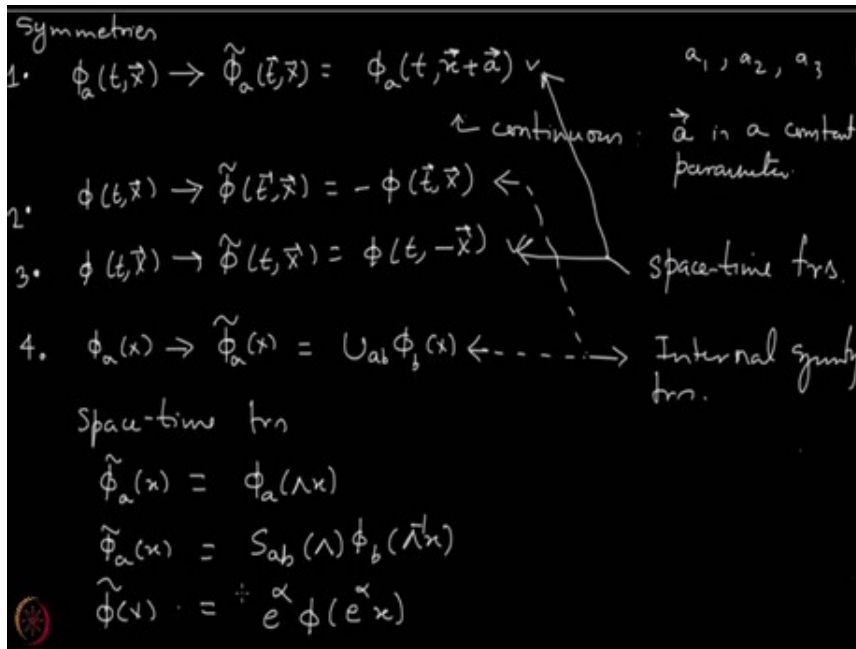 Symmetries
1. ϕ_a(t,x⃗) → ϕ̃_a(t,x⃗) = ϕ_a(t,x⃗+a⃗) a_1, a_2, a_3
continuous: a⃗ is a constant
parameter.
2. ϕ(t,x⃗) → ϕ̃(t,x⃗) = -ϕ(t,x⃗) ←
3. ϕ(t,x⃗) → ϕ̃(t,x⃗) = ϕ(t,-x⃗)
space-time trs.
4. ϕ_a(x) → ϕ̃_a(x) = U_ab ϕ_b(x) ← - - - → Internal
trn.
Space-time trn
ϕ̃_a(x) = ϕ_a(Λx)
ϕ̃_a(x) = S_ab(Λ) ϕ_b(Λ^-1 x)
ϕ̃(x) = e^α ϕ(e^α x)